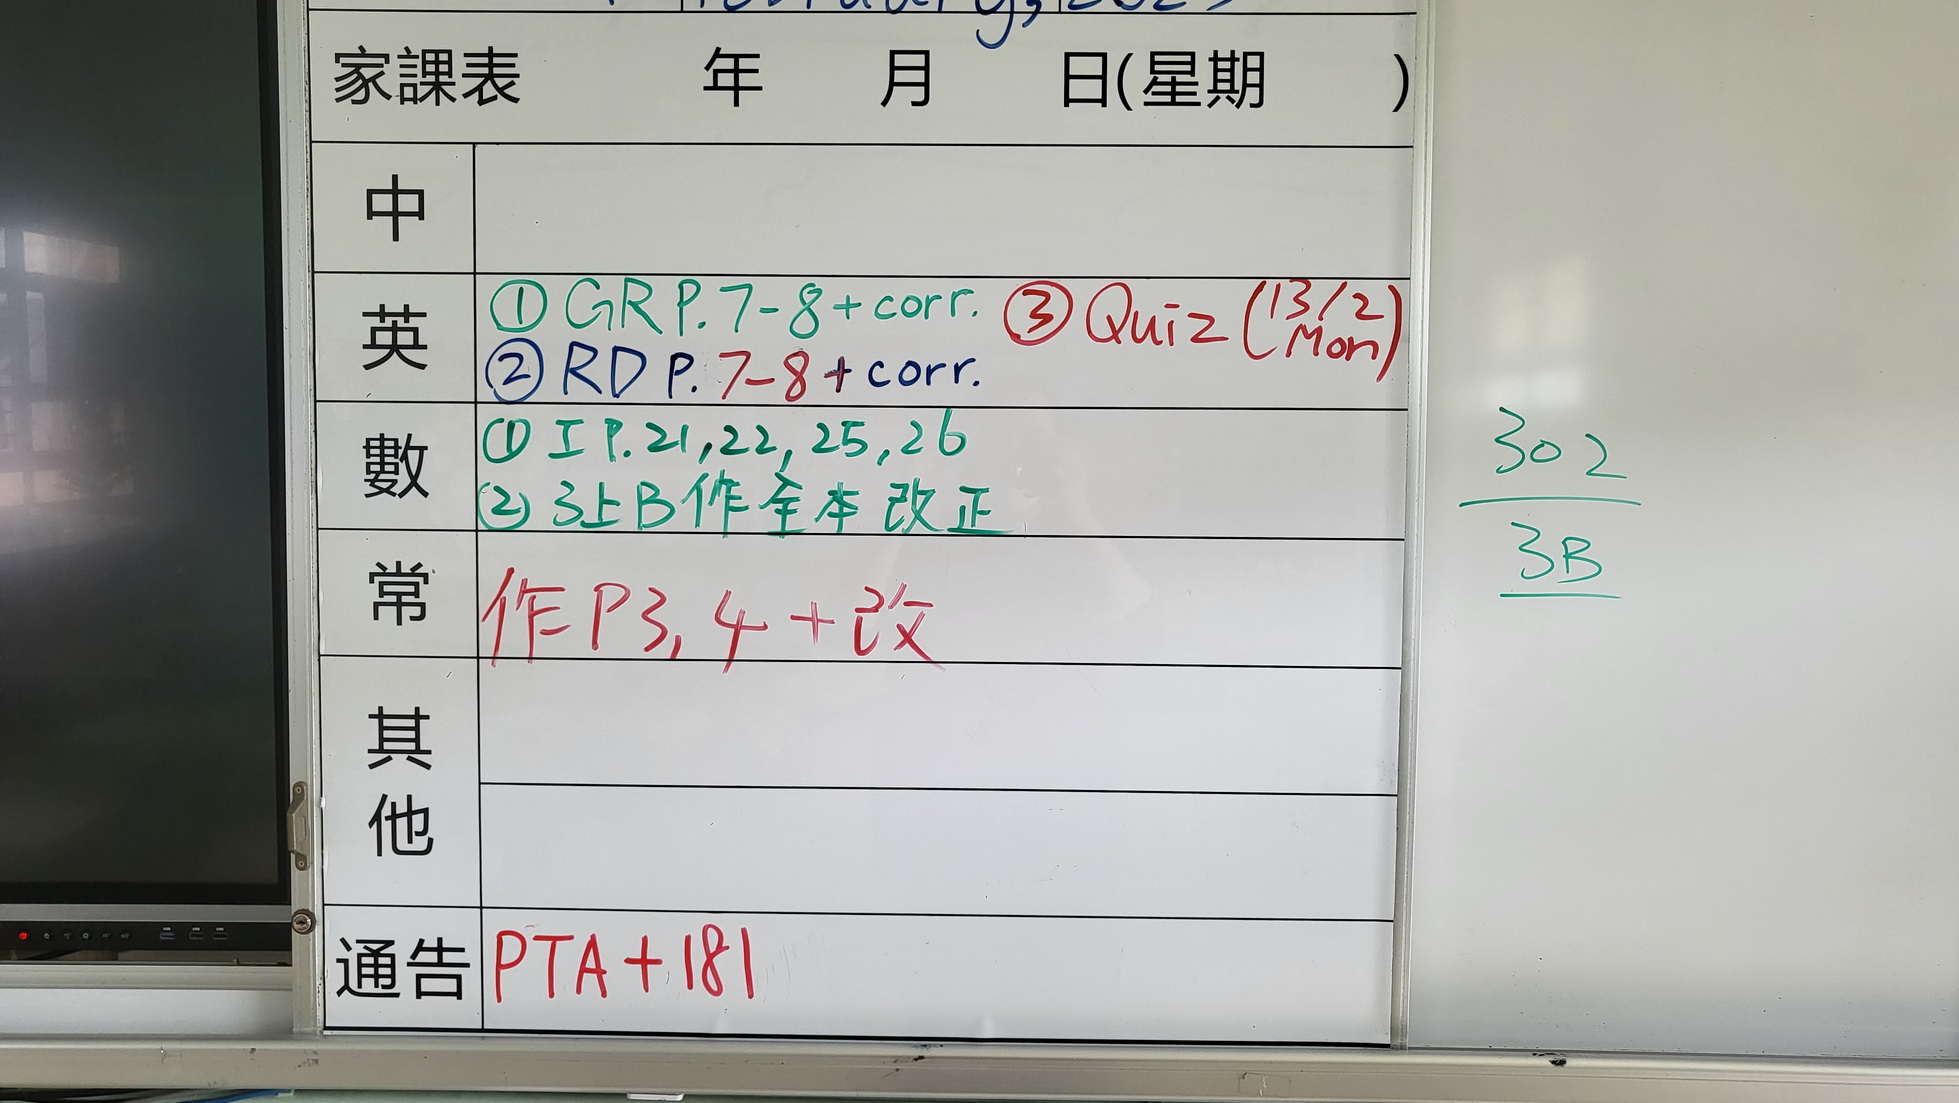 February, 2023
家課表 年 月 日(星期 )
中
英
① GR P. 7-8 + corr. ③ Quiz (13/2 Mon)
② RD P. 7-8 + corr.
數
① I P. 21, 22, 25, 26
② 3上B作全本改正
常
作 P3, 4 + 改
其他
通告
PTA + 181
302
3B